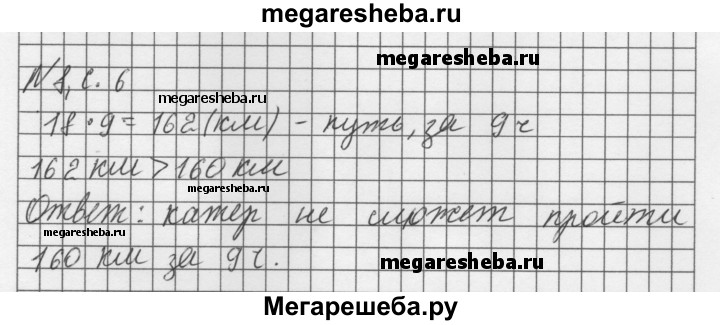 megaresheba.ru
megaresheba.ru
N 8, с. 6
megaresheba.ru
18 · 9 = 162 (км) - путь, за 9 ч
162 км > 160 км
megaresheba.ru
Ответ: катер не сможет пройти
megaresheba.ru
160 км за 9 ч.
megaresheba.ru
Мегарешеба.ру